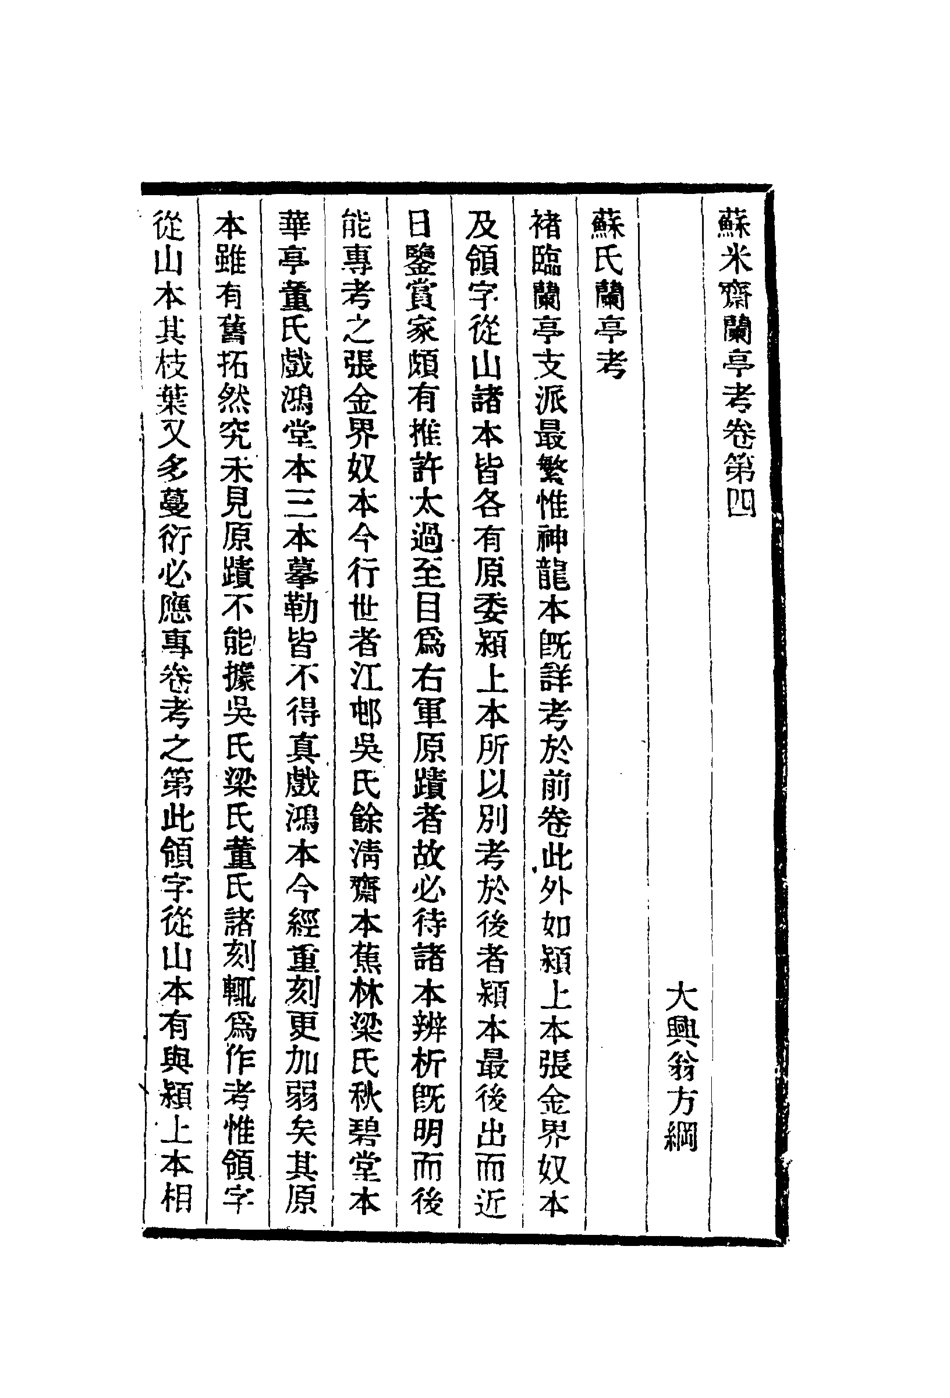 蘇米齋蘭亭考卷第四
大興翁方綱
蘇氏蘭亭考
褚臨蘭亭支派最繁惟神龍本旣詳考於前卷此外如潁上本張金界奴本
及領字從山諸本皆各有原委潁上本所以別考於後者潁本最後出而近
日鑒賞家頗有推許太過至目爲右軍原蹟者故必待諸本辨析旣明而後
能專考之張金界奴本今行世者江邨吳氏餘清齋本蕉林梁氏秋碧堂本
華亭董氏戲鴻堂本三本摹勒皆不得真戲鴻本今經重刻更加弱矣其原
本雖有舊拓然究未見原蹟不能據吳氏梁氏董氏諸刻輒爲作考惟領字
從山本其枝葉又多蔓衍必應專卷考之第此領字從山本有與潁上本相